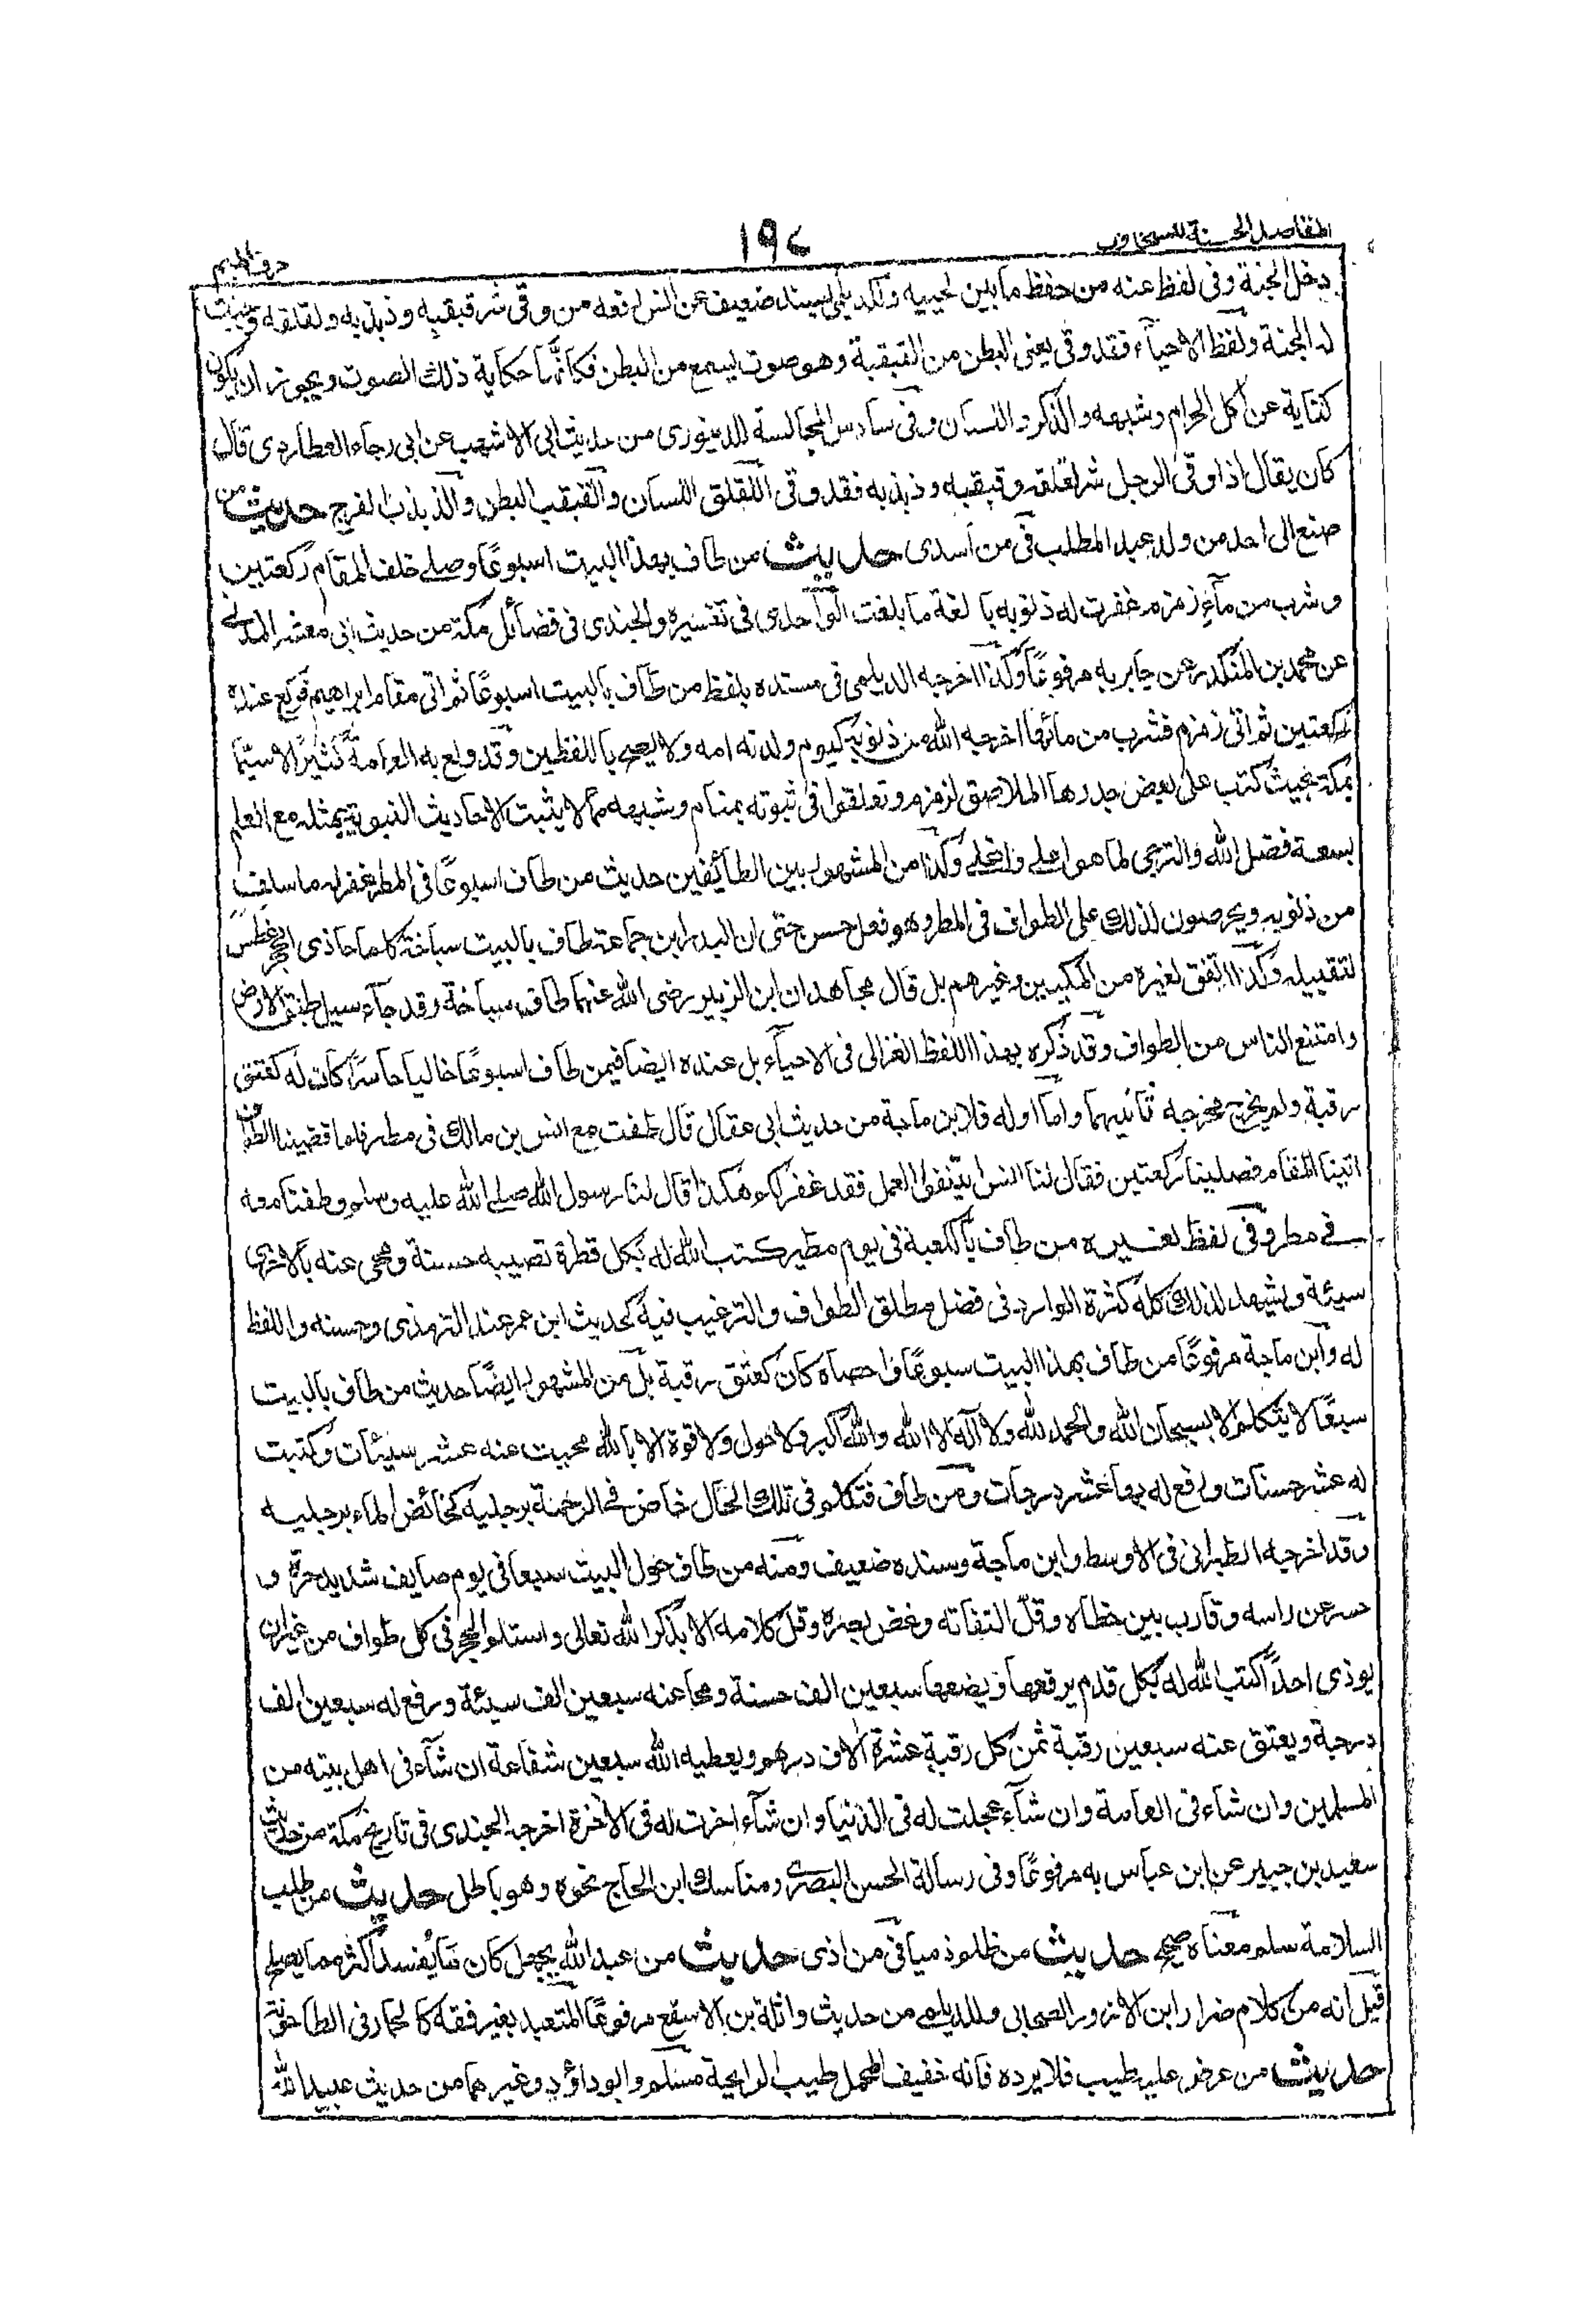 المقاصد الحسنة للسخاوی
١٩٤
حرف المیم
دخل الجنة وفی لفظ عنه من حفظ ما بین لحییه وللدیلمی بسند ضعیف عن انس رفعه من وقی شر قبقبه وذبذبه ولقلقه وجبت
له الجنة ولفظ الاحیآء فقد وقی یعنی البطن من القبقبة وهو صوت یسمع من البطن فکانّها حکایة ذلك الصوت ویجوز ان یکون
کنایة عن اکل الحرام وشبهه والذکر واللسان وفی سادس المجالسة للدینوری من حدیث ابی الاشهب عن ابی رجاء العطاردی قال
کان یقال اذا وقی الرجل شر لقلقه وقبقبه وذبذبه فقد وقی اللقلق اللسان والقبقب البطن والذبذب الفرج حدیث من
صنع الی احد من ولد عبد المطلب فی من اسدی حدیث من طاف بهذا البیت اسبوعًا وصلی خلف المقام رکعتین
وشرب من مآء زمزم غفرت له ذنوبه بالغة ما بلغت الواحدی فی تفسیره والجندی فی فضائل مکة من حدیث ابی معشر المدنی
عن محمد بن المنکدر عن جابر به مرفوعًا وکذا اخرجه الدیلمی فی مسنده بلفظ من طاف بالبیت اسبوعًا ثم اتی مقام ابراهیم فرکع عنده
رکعتین ثم اتی زمزم فشرب من مائها اخرجه الله من ذنوبه کیوم ولدته امه ولا یصح باللفظین وقد ولع به العامة کثیرًا لا سیّما
بمکة بحیث کتب علی بعض جدرها الملاصق لزمزم وتعلقوا فی ثبوته بمنام وشبهه مما لا یثبت الاحادیث النبویة بمثله مع العلم
بسعة فضل الله والترجی لما هو اعلی واغلی وکذا من المشهور بین الطائفین حدیث من طاف اسبوعًا فی المطر غفر له ما سلف
من ذنوبه ویحرصون لذلك علی الطواف فی المطر وهو فعل حسن حتی ان البدر ابن جماعة طاف بالبیت سباحة کلما حاذی الحجر غطس
لتقبیله وکذا اتفق لغیره من المکیین وغیرهم بل قال مجاهد ان ابن الزبیر رضی الله عنهما طاف سباحة وقد جآء سیل طبق الارض
وامتنع الناس من الطواف وقد ذکره بهذا اللفظ الغزالی فی الاحیآء بل عنده ایضا فیمن طاف اسبوعًا خالیا حاسرًا کان له کعتق
رقبة ولم یخرج مخرجه ثانیهما واما اوله فلابن ماجة من حدیث ابی عقال قال طفت مع انس بن مالك فی مطر فلما قضینا الطواف
اتینا المقام فصلینا رکعتین فقال لنا انس ائتنفوا العمل فقد غفر لکم هکذا قال لنا رسول الله صلی الله علیه وسلم وطفنا معه
فی مطر وفی لفظ لغیره من طاف بالکعبة فی یوم مطیر کتب الله له بکل قطرة تصیبه حسنة ومحی عنه بالاخری
سیئة ویشهد لذلك کله کثرة الوارد فی فضل مطلق الطواف والترغیب فیه کحدیث ابن عمر عند الترمذی وحسنه واللفظ
له وابن ماجة مرفوعًا من طاف بهذا البیت سبوعًا فاحصاه کان کعتق رقبة بل من المشهور ایضًا حدیث من طاف بالبیت
سبعًا لا یتکلم الا بسبحان الله والحمد لله ولا آله الا الله والله اکبر ولا حول ولا قوة الا بالله محیت عنه عشر سیئات وکتبت
له عشر حسنات ورفع له بها عشر درجات ومن طاف فتکلم فی تلك الحال خاض فی الرحمة برجلیه کخائض الماء برجلیه
وقد اخرجه الطبرانی فی الاوسط وابن ماجة وسنده ضعیف ومنه من طاف حول البیت سبعا فی یوم صایف شدید حرّه و
حسر عن راسه وقارب بین خطاه وقلّ التفاته وغض بصره وقلّ کلامه الا بذکر الله تعالی واستلم الحجر فی کل طواف من غیر ان
یوذی احدًا کتب الله له بکل قدم یرفعها ویضعها سبعین الف حسنة ومحا عنه سبعین الف سیئة ورفع له سبعین الف
درجة ویعتق عنه سبعین رقبة ثمن کل رقبة عشرة آلاف درهم ویعطیه الله سبعین شفاعة ان شآء فی اهل بیته من
المسلمین وان شاء فی العامة وان شآء عجلت له فی الدنیا وان شآء اخرت له فی الآخرة اخرجه الجندی فی تاریخ مکة من حدیث
سعید بن جبیر عن ابن عباس به مرفوعًا وفی رسالة الحسن البصری ومناسك ابن الحاج نحوه وهو باطل حدیث من طلب
السلامة سلم معناه صحیح حدیث من ظلم ذمیا فی من اذی حدیث من عبد الله بجهل کان ما یفسد اکثر مما یصلح
قیل انه من کلام ضرار ابن الازور الصحابی وللدیلمی من حدیث واثلة بن الاسقع مرفوعًا المتعبد بغیر فقه کالحمار فی الطاحونة
حدیث من عرض علیه طیب فلا یرده فانه خفیف المحمل طیب الرایحة مسلم وابو داؤد وغیرهما من حدیث عبید الله